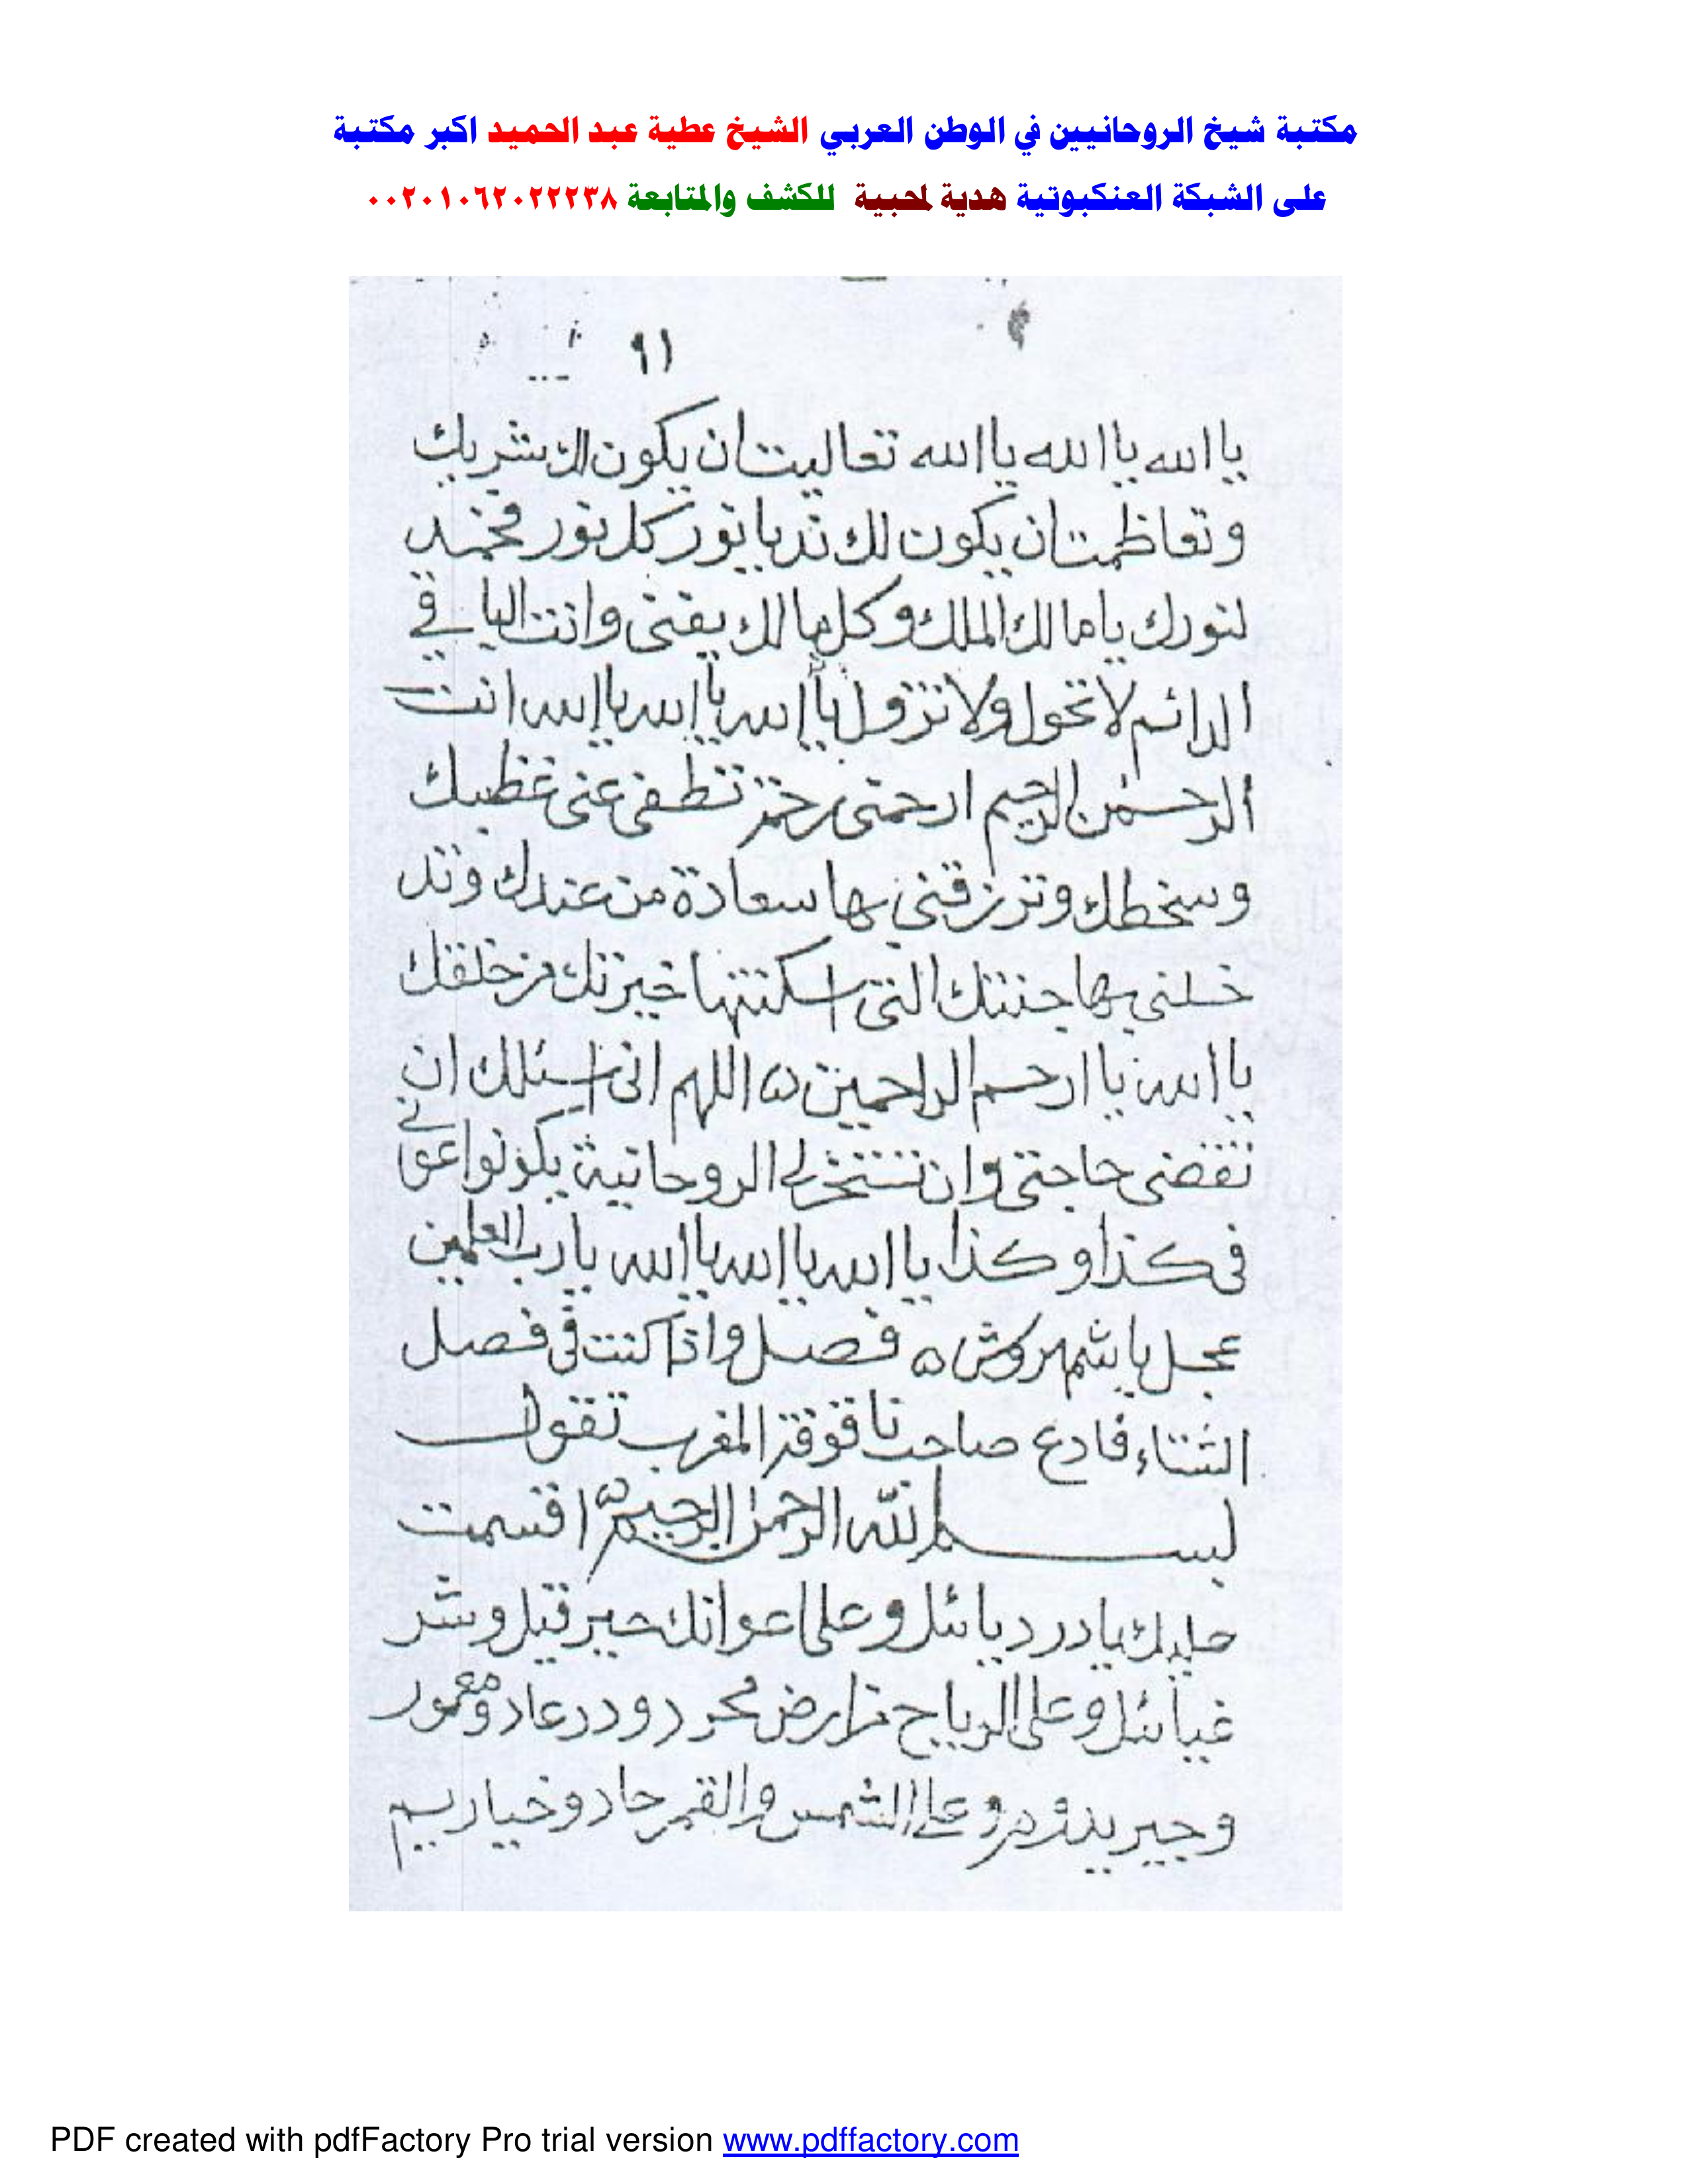 مكتبة شيخ الروحانيين في الوطن العربي الشيخ عطية عبد الحميد اكبر مكتبة
على الشبكة العنكبوتية هدية لمحبية للكشف والمتابعة ٠٠٢٠١٠٦٢٠٢٢٢٣٨
٩١
يا الله يا الله يا الله تعاليت ان يكون لك شريك
وتعاظمت ان يكون لك ند يا نور كل نور
لنورك يا مالك الملك وكل مالك يفنى وانت الباقي
الدائم لا تحول ولا تزول يا الله يا الله يا الله انت
الرحمن الرحيم ارحمنى رحمة تطفى عنى غظبك
وسخطك وترزقني بها سعادة من عندك وتد
خلنى بها جنتك التى اسكنتها خيرتك من خلقك
يا الله يا ارحم الراحمين ه اللهم انى اسئلك ان
تقضى حاجتى وان تسخر لى الروحانية يكونوا عونى
فى كذا وكذا يا الله يا الله يا الله يا رب العلمين
عجل يا شمهروش ه فصل واذا كنت فى فصل
الشتاء فادع صاحب ناقوقة المغرب تقول
بسم الله الرحمن الرحيم ه اقسمت
عليك يا دردیائل وعلى اعوانك حيرقيل وشر
غيائل وعلى الرياح محرز ودرعاد ومعمور
وجير وعلى الشمس والقمر حاد وخيا
PDF created with pdfFactory Pro trial version www.pdffactory.com